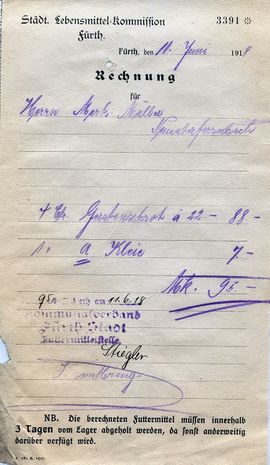 Städt. Lebensmittel-Kommission
3391
Fürth.
Fürth, den 11. Juni 1918
Rechnung
für
Herrn Mart. Müller
4 Ctr. Gerstenschrot à 22 - 88 -
1 " a Kleie 7 -
Mk. 95 -
den 11.6.18
Kommunalverband
Fürth Stadt
Futtermittelstelle.
Stiegler
NB. Die berechneten Futtermittel müssen innerhalb
3 Tagen vom Lager abgeholt werden, da sonst anderweitig
darüber verfügt wird.